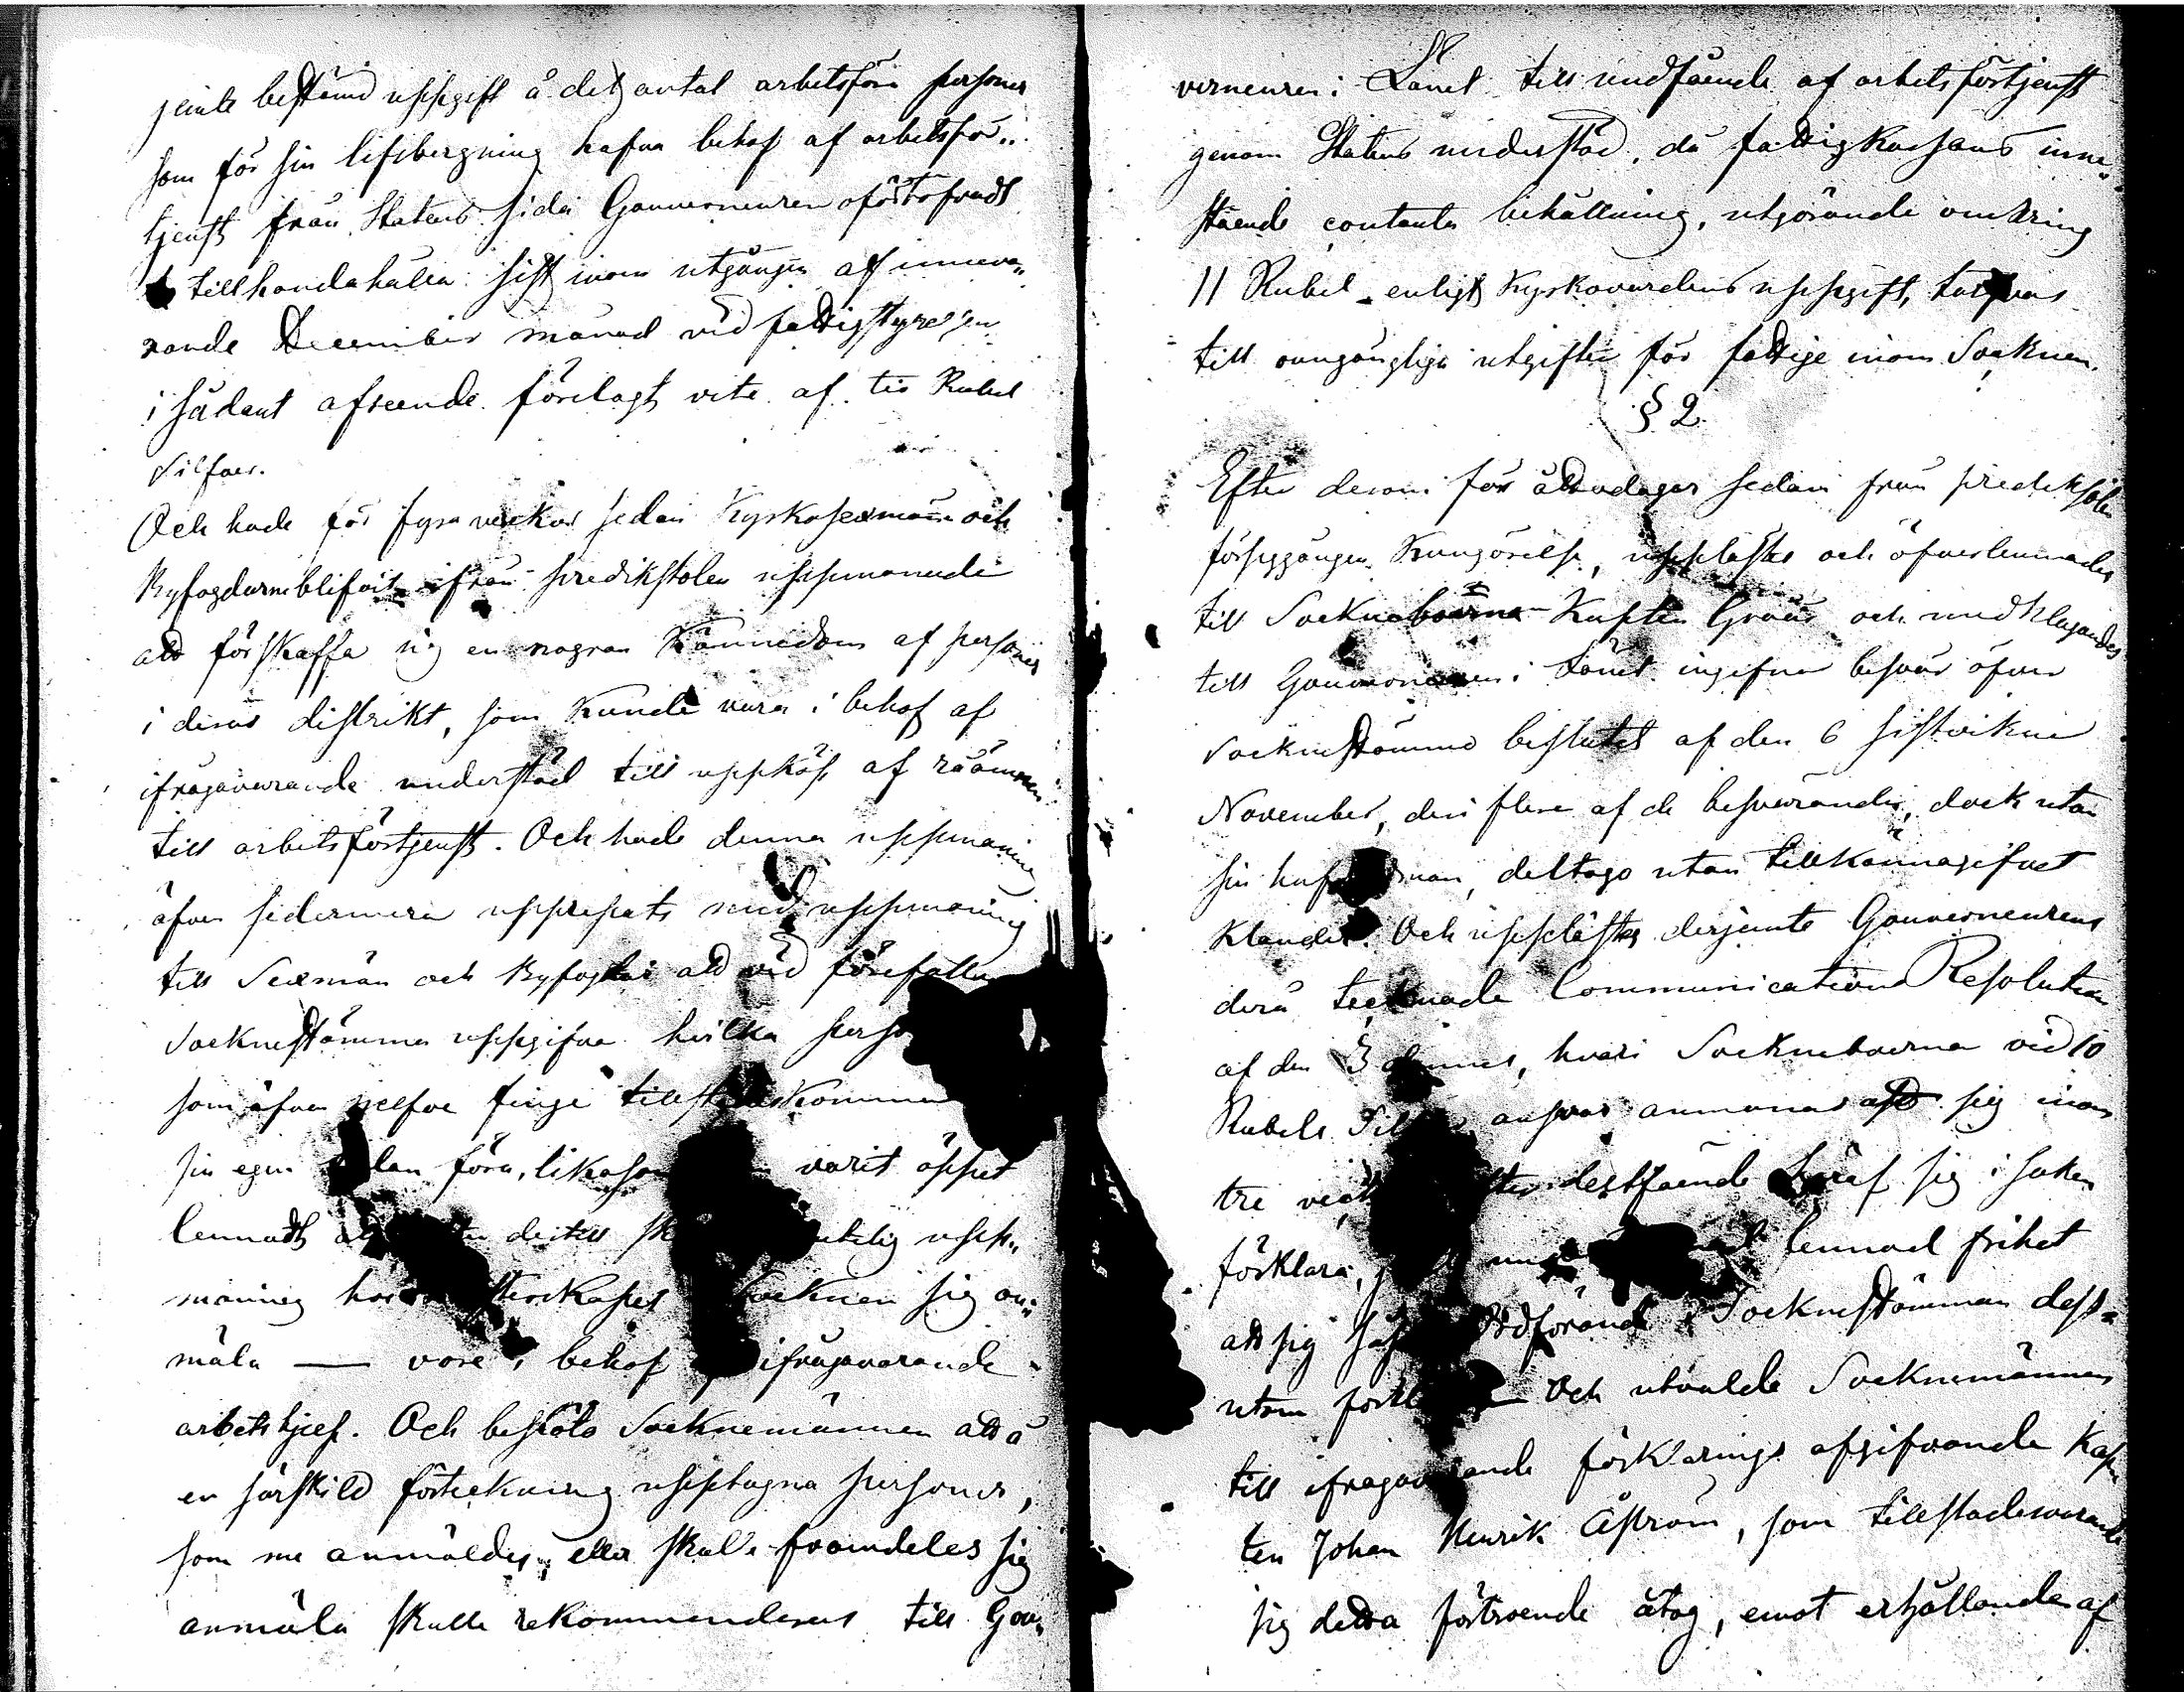 jemte bestämd uppgift å det antal arbetsföra personer
som för sin lifsbergning hafva behof af arbetsför„
tjenst från Statens sida Gouverneuren ofördröjradt
tillhandahålla sist inom utgången af inneva„
rande December månad vid fattigstyrelsen
i sådant afseende förelagt vite af tio Rubel
Silfver.
Och hade för fyra veckor sedan Kyrkosexmän och
Byfogdarne blifvit ifrån predikstolen uppmanade
att förskaffa sig en nogran kännedom af personer
i deras distrikt, som kunde vara i behof af
ifrågavarande understöd till uppköp af råämnen
till arbetsförtjenst. Och hade denna uppmaning
äfven sedermera upprepats med uppmaning
till Sexmän och Byfogdar att vid förefallen
Socknestämma uppgifva hvilka
som äfven sjelfve finge
sin egen talan föra, likasom varit öppet
lemnadt dertill upp„
maning hos Socknen sig an„
mäla — vore i behof af ifrågavarande
arbetshjelp. Och beslöto Socknemännen att å
en särskild förteckning upptagna personer,
som nu anmäldes, eller skulle framdeles sig
anmäla skulle rekommenderas till Gou„
verneuren i Länet till undfående af arbetsförtjenst
genom Statens understöd, då fattigkassans inne„
stående contanta behållning, utgörande omkring
11 Rubel enligt Kyrkovärdens uppgift, tarfvas
till oumgängliga utgifter för fattige inom Socknen.
§ 2.
Efter derom för åtta dagar sedan från predikstolen
försiggången Kungörelse, upplästes och öfverlemnades
till Sockneboerna Kapten Graas och medklagandes
till Gouverneuren i Länet ingifna besvär öfver
Socknestämmo beslutet af den 6 sistvikne
November, deri flere af de besvärande, dock utan
sin hufvudman, deltago utan tillkännagifvet
klander. Och upplästes derjemte Gouverneurens
derå tecknade Communications Resolution
af den 3 dennes, hvari Sockneboerna vid 10
Rubels Silfver ansvar anmanas att sig inom
tre veckor efter delfående häraf sig i saken
förklara, lemnad frihet
att sig Ordförande i Socknestämman dess„
utom — Och utvalde Socknemännen
till ifrågavarande förklarings afgifvande Kap„
ten Johan Henrik Åström, som tillstädesvarande
sig detta förtroende åtog, emot erhållande af